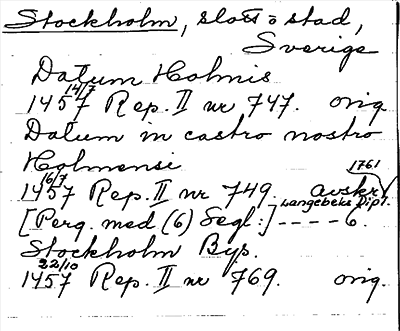 Stockholm, slott o stad,
Sverige
Datum Holmis
14/7
1457 Rep. II nr 747. orig
Datum in castro nostro
Holmensi
16/7 1761
1457 Rep. II nr 749. avskr.
Langebeks Dipl.
[Perg. med (6) Segl:] - - - - 6.
Stockholm Bys.
22/10
1457 Rep. II nr 769. orig.